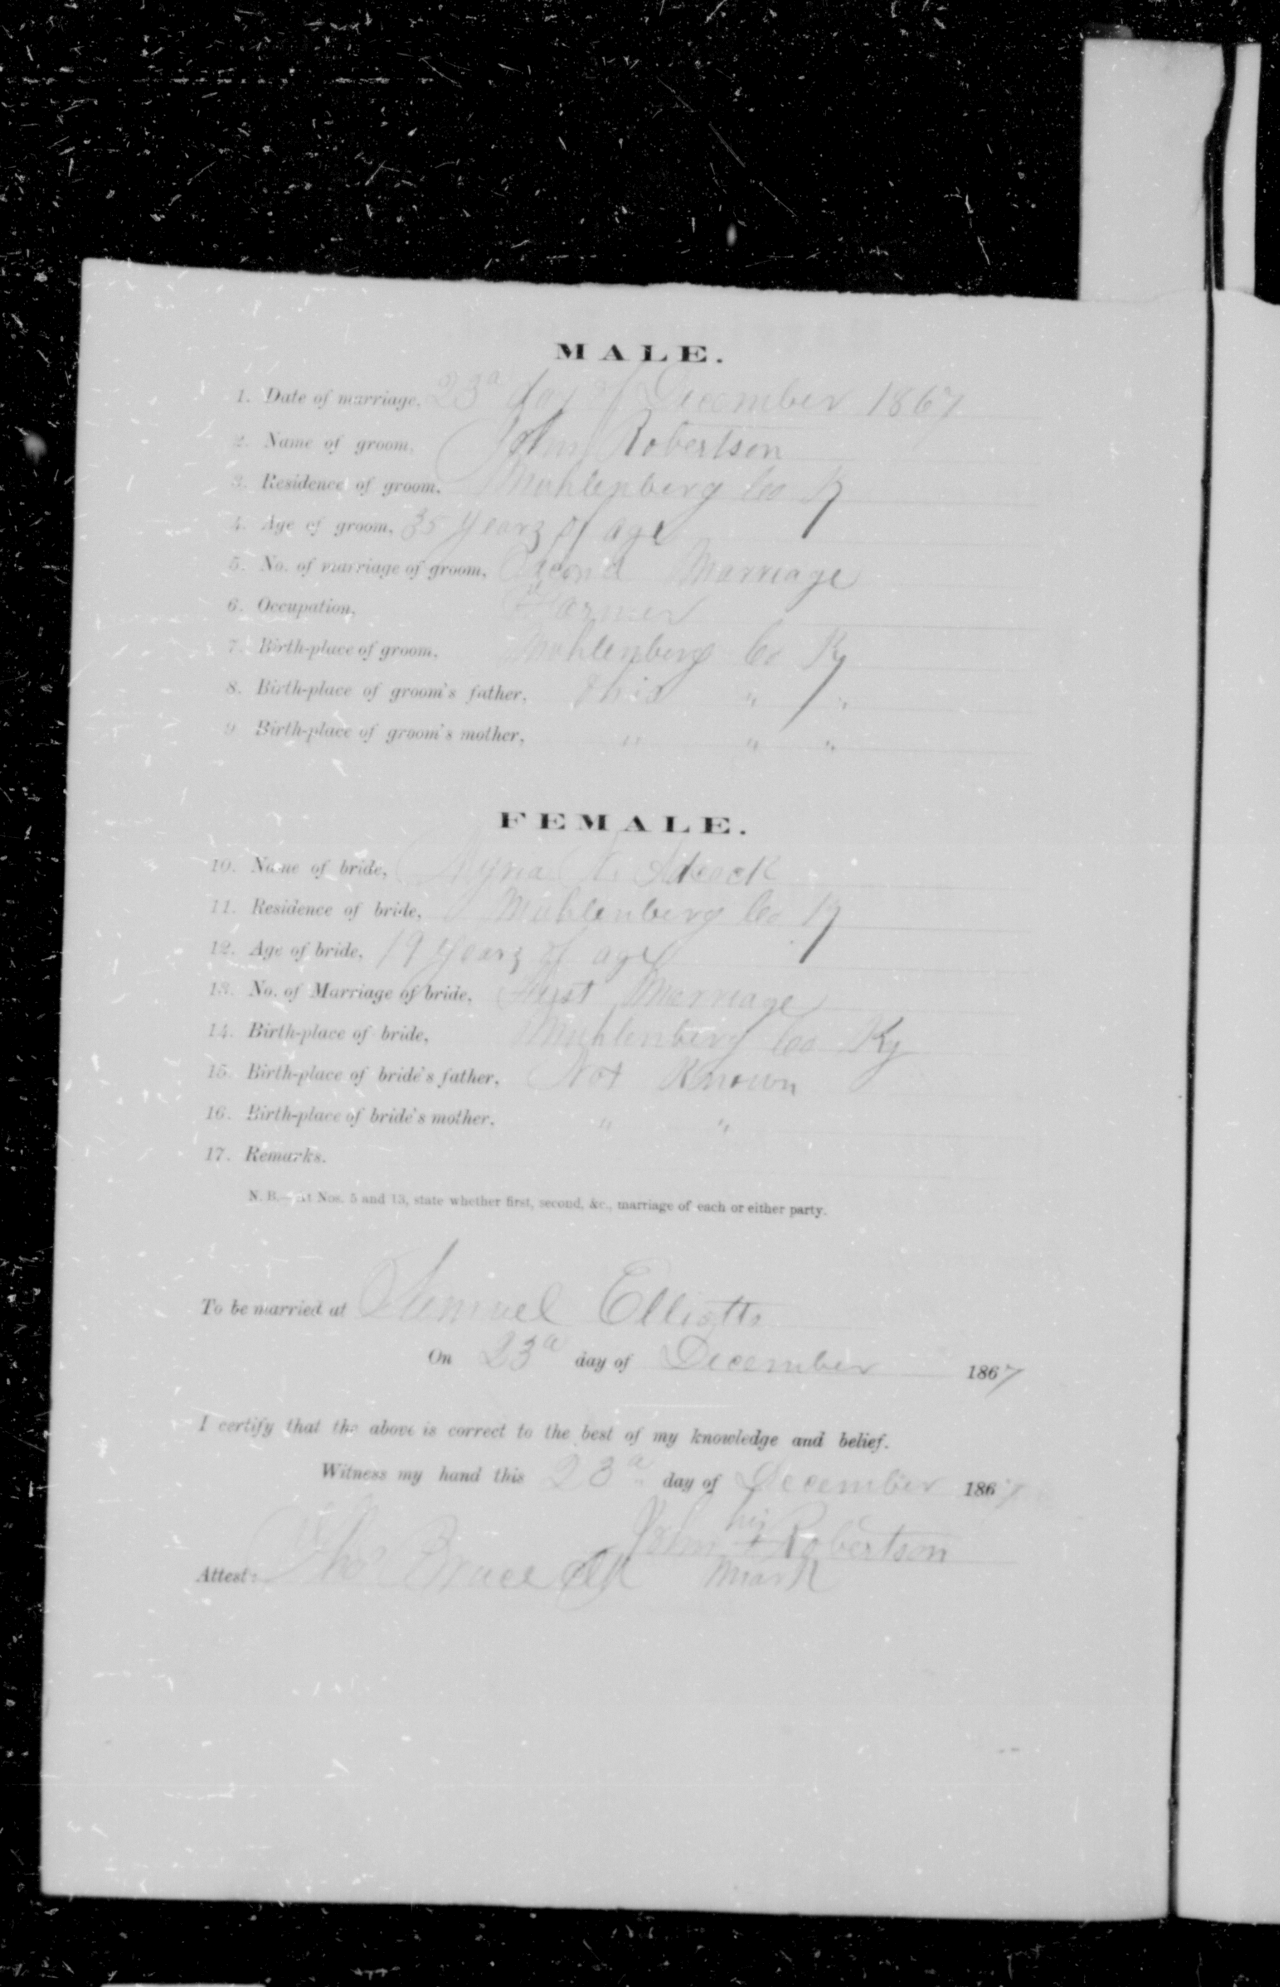 MALE.
1. Date of marriage, 23d day of December 1867
2. Name of groom, John Robertson
3. Residence of groom, Muhlenberg Co Ky
4. Age of groom, 35 years of age
5. No. of marriage of groom, Second Marriage
6. Occupation, Farmer
7. Birth-place of groom, Muhlenberg Co Ky
8. Birth-place of groom's father, Ohio " "
9 Birth-place of groom's mother, " " "
FEMALE.
10. Name of bride, Adcock
11. Residence of bride, Muhlenberg Co Ky
12. Age of bride, 19 years of age
13. No. of Marriage of bride, First Marriage
14. Birth-place of bride, Muhlenberg Co Ky
15. Birth-place of bride's father, Not Known
16. Birth-place of bride's mother, " "
17. Remarks.
N. B.—At Nos. 5 and 13, state whether first, second, &c., marriage of each or either party.
To be married at Samuel Elliotts
On 23d day of December 1867
I certify that the above is correct to the best of my knowledge and belief.
Witness my hand this 23d day of December 1867
his
John + Robertson
mark
Attest: Thos Bruce Clk